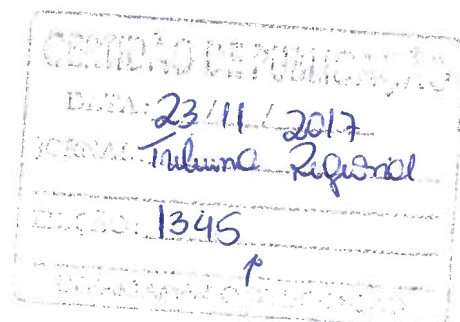 CERTIDÃO DE PUBLICAÇÃO
DATA: 23/11/2017
JORNAL: Tribuna Regional
EDIÇÃO: 1345